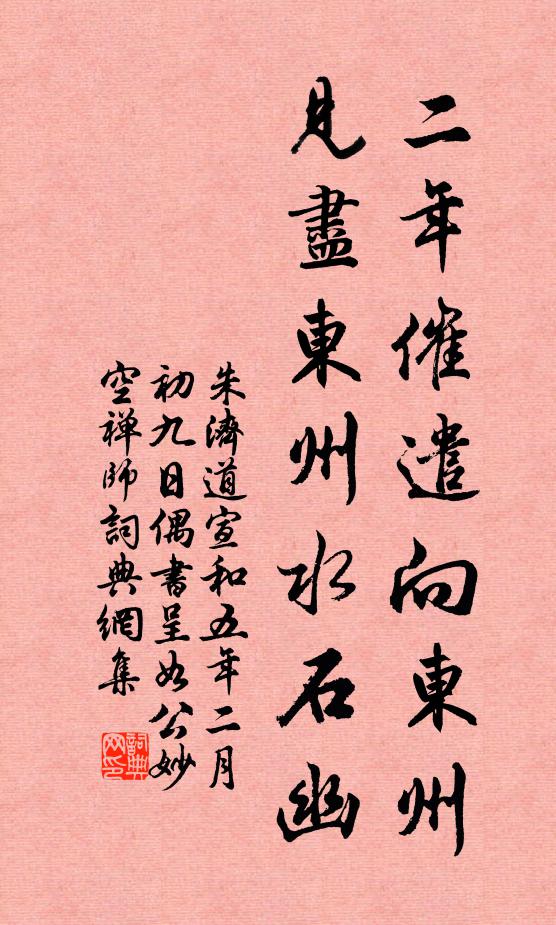 二年催遣向東州
見盡東州水石幽
朱濟道宣和五年二月
初九日偶書呈如公妙
空禅師詞典網集
詞典
网印